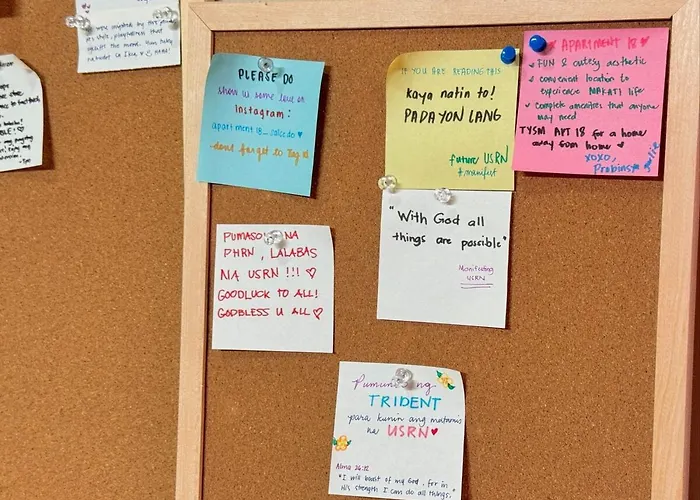 PLEASE DO
show us some love on
Instagram:
apartment18_salcedo ♥
dont forget to tag us
IF YOU ARE READING THIS
kaya natin to!
PADAYON LANG
future USRN
#manifest
♡ APARTMENT 18 ♡
✓ FUN & cutesy aesthetic
✓ convenient location to
experience MAKATI life
✓ complete amenities that anyone
may need
TYSM APT 18 for a home
away from home ♥
XOXO,
PUMASOK NA
PHRN, LALABAS
NA USRN !!! ♡
GOODLUCK TO ALL!
GODBLESS U ALL ♡
"With God all
things are possible"
Manifesting
USRN
Pumunta ng
TRIDENT
para kunin ang matamis
na USRN ♥
Alma 26:12
"I will boast of my God, for in
His strength I can do all things."